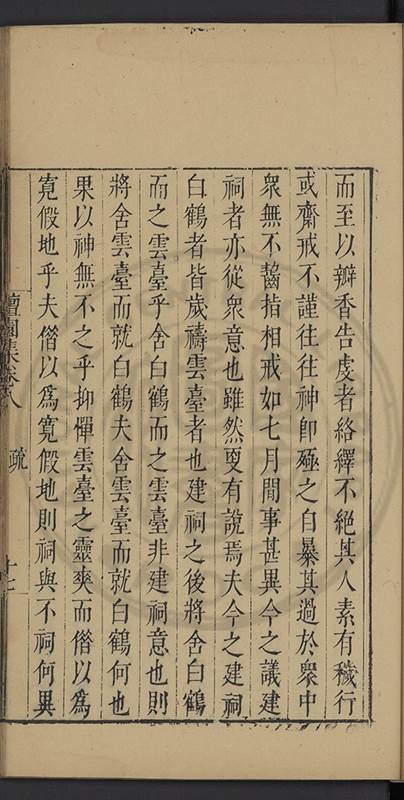 而至以瓣香告虔者絡繹不絕其人素有穢行
或齋戒不謹往往神卽殛之自暴其過於衆中
衆無不齰指相戒如七月間事甚異今之議建
祠者亦從衆意也雖然更有說焉夫今之建祠
白鶴者皆歲禱雲臺者也建祠之後將舍白鶴
而之雲臺乎舍白鶴而之雲臺非建祠意也則
將舍雲臺而就白鶴夫舍雲臺而就白鶴何也
果以神無不之乎抑憚雲臺之靈爽而偺以爲
寬假地乎夫偺以爲寬假地則祠與不祠何異
園集卷八
疏
十七